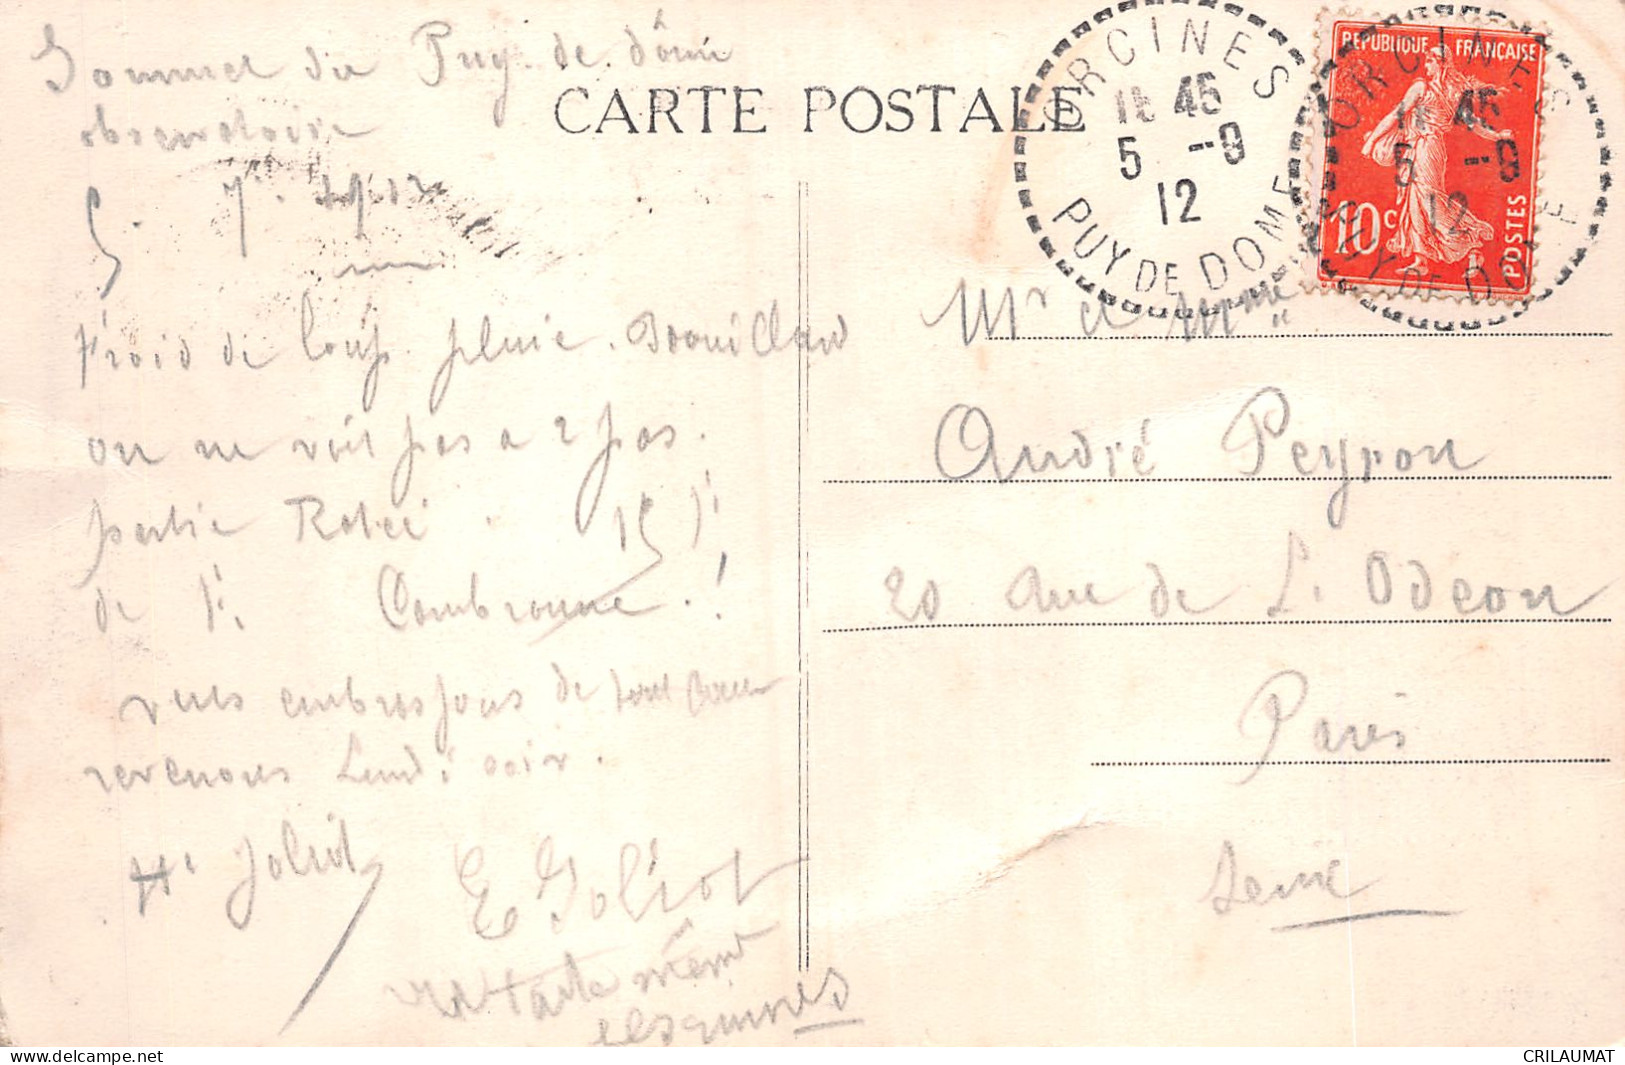 Sommet du Puy de dôme
observatoire
CARTE POSTALE
5. 7bre 1912
Froid de loup. pluie. Brouillard
on ne voit pas a 2 pas.
partie
de Combronne. !
vous embrassons de tout Coeur
revenons Lundi soir.
H. Joliot
E Joliot
ORCINES
11 45
5 -9
12
PUY DE DOME
REPUBLIQUE FRANÇAISE
10c
POSTES
ORCINES
11 45
5 -9
12
PUY DE DOME
Mr et Mme
André Peyron
20 Rue de L. Odeon
Paris
Seine
CRILAUMAT
www.delcampe.net